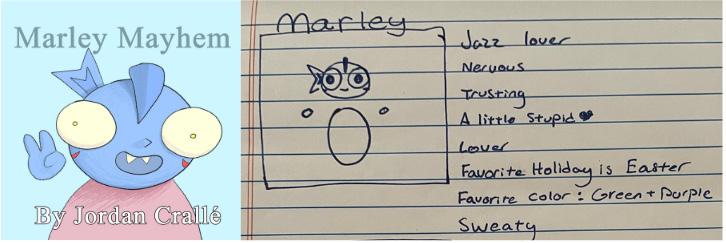 Marley Mayhem
By Jordan Crallé
Marley
Jazz lover
Nervous
Trusting
A little stupid
Lover
Favorite Holiday is Easter
Favorite color: Green + Purple
Sweaty